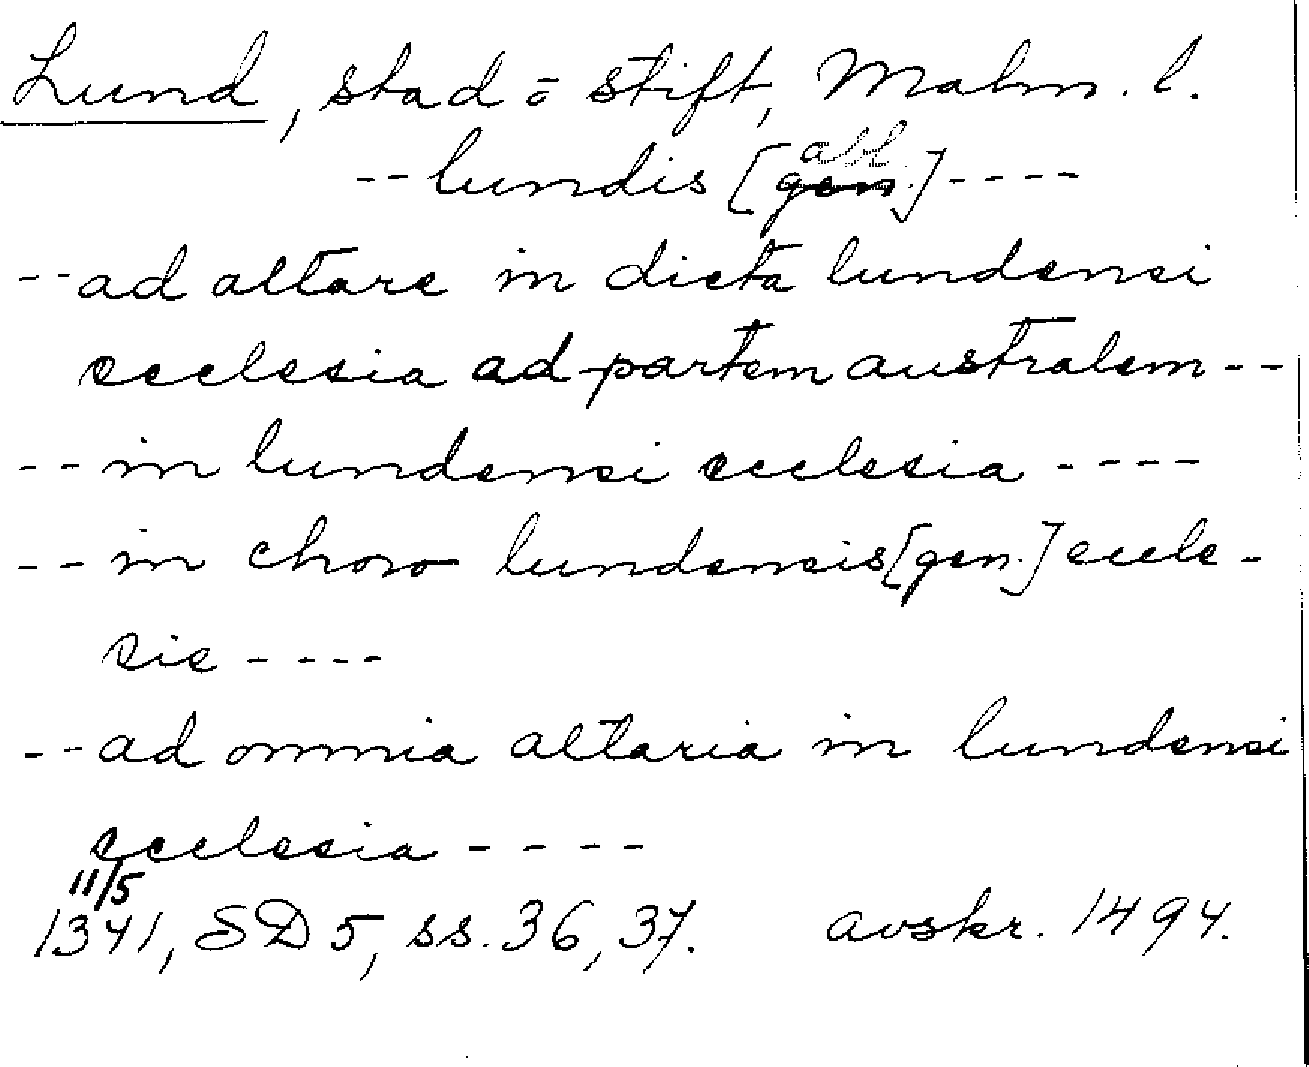 Lund, stad o stift, Malm. l.
-- lundis [gen. abl.] ----
-- ad altare in dicta lundensi
ecclesia ad partem australem --
-- in lundensi ecclesia ----
-- in choro lundensis [gen.] eccle-
sie ----
-- ad omnia altaria in lundensi
ecclesia ----
11/5
1341, SD 5, ss. 36, 37. avskr. 1494.